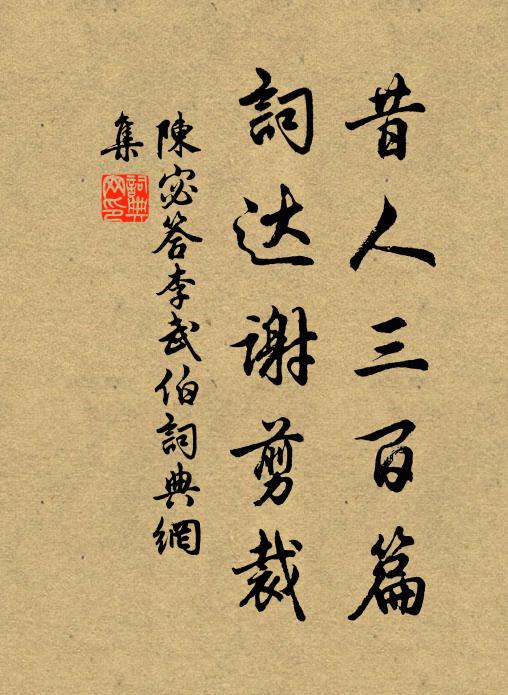 昔人三百篇
詞达謝剪裁
陳宓答李武伯詞典網
集
詞典网印